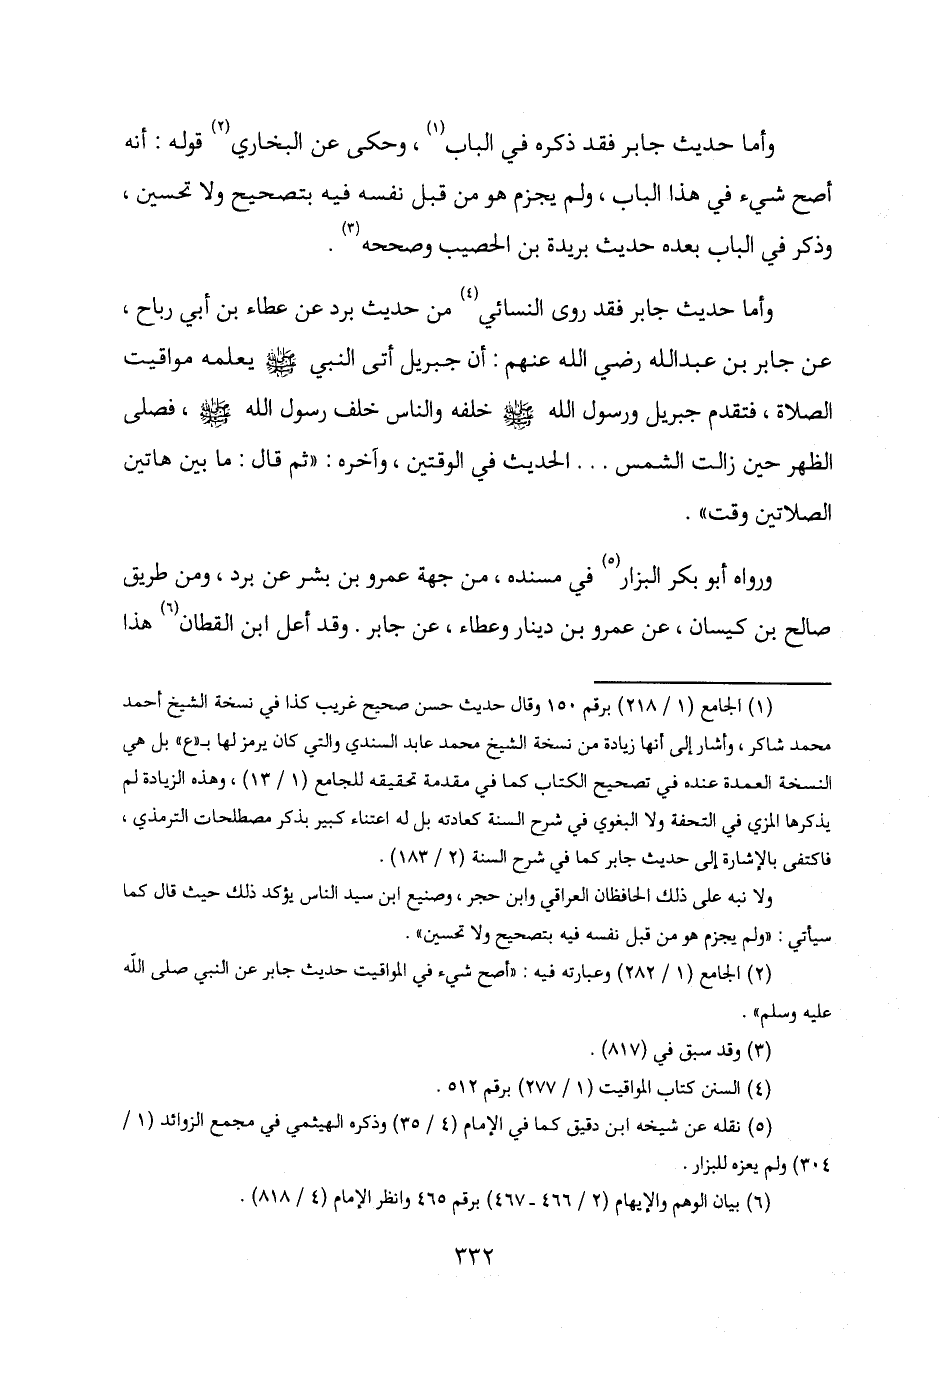 وأما حديث جابر فقد ذكره في الباب(١) ، وحكى عن البخاري(٢) قوله : أنه
أصح شيء في هذا الباب ، ولم يجزم هو من قبل نفسه فيه بتصحيح ولا تحسين ،
وذكر في الباب بعده حديث بريدة بن الحصيب وصححه(٣) .
وأما حديث جابر فقد روى النسائي(٤) من حديث برد عن عطاء بن أبي رباح ،
عن جابر بن عبدالله رضي الله عنهم : أن جبريل أتى النبي ﷺ يعلمه مواقيت
الصلاة ، فتقدم جبريل ورسول الله ﷺ خلفه والناس خلف رسول الله ﷺ ، فصلى
الظهر حين زالت الشمس . . . الحديث في الوقتين ، وآخره : «ثم قال : ما بين هاتين
الصلاتين وقت» .
ورواه أبو بكر البزار(٥) في مسنده ، من جهة عمرو بن بشر عن برد ، ومن طريق
صالح بن كيسان ، عن عمرو بن دينار وعطاء ، عن جابر . وقد أعل ابن القطان(٦) هذا
(١) الجامع (١ / ٢١٨) برقم ١٥٠ وقال حديث حسن صحيح غريب كذا في نسخة الشيخ أحمد
محمد شاكر ، وأشار إلى أنها زيادة من نسخة الشيخ محمد عابد السندي والتي كان يرمز لها بـ«ع» بل هي
النسخة العمدة عنده في تصحيح الكتاب كما في مقدمة تحقيقه للجامع (١ / ١٣) ، وهذه الزيادة لم
يذكرها المزي في التحفة ولا البغوي في شرح السنة كعادته بل له اعتناء كبير بذكر مصطلحات الترمذي ،
فاكتفى بالإشارة إلى حديث جابر كما في شرح السنة (٢ / ١٨٣) .
ولا نبه على ذلك الحافظان العراقي وابن حجر ، وصنيع ابن سيد الناس يؤكد ذلك حيث قال كما
سيأتي : «ولم يجزم هو من قبل نفسه فيه بتصحيح ولا تحسين» .
(٢) الجامع (١ / ٢٨٢) وعبارته فيه : «أصح شيء في المواقيت حديث جابر عن النبي صلى الله
عليه وسلم» .
(٣) وقد سبق في (٨١٧) .
(٤) السنن كتاب المواقيت (١ / ٢٧٧) برقم ٥١٢ .
(٥) نقله عن شيخه ابن دقيق كما في الإمام (٤ / ٣٥) وذكره الهيثمي في مجمع الزوائد (١ /
٣٠٤) ولم يعزه للبزار .
(٦) بيان الوهم والإيهام (٢ / ٤٦٦ ـ ٤٦٧) برقم ٤٦٥ وانظر الإمام (٤ / ٨١٨) .
٣٣٢